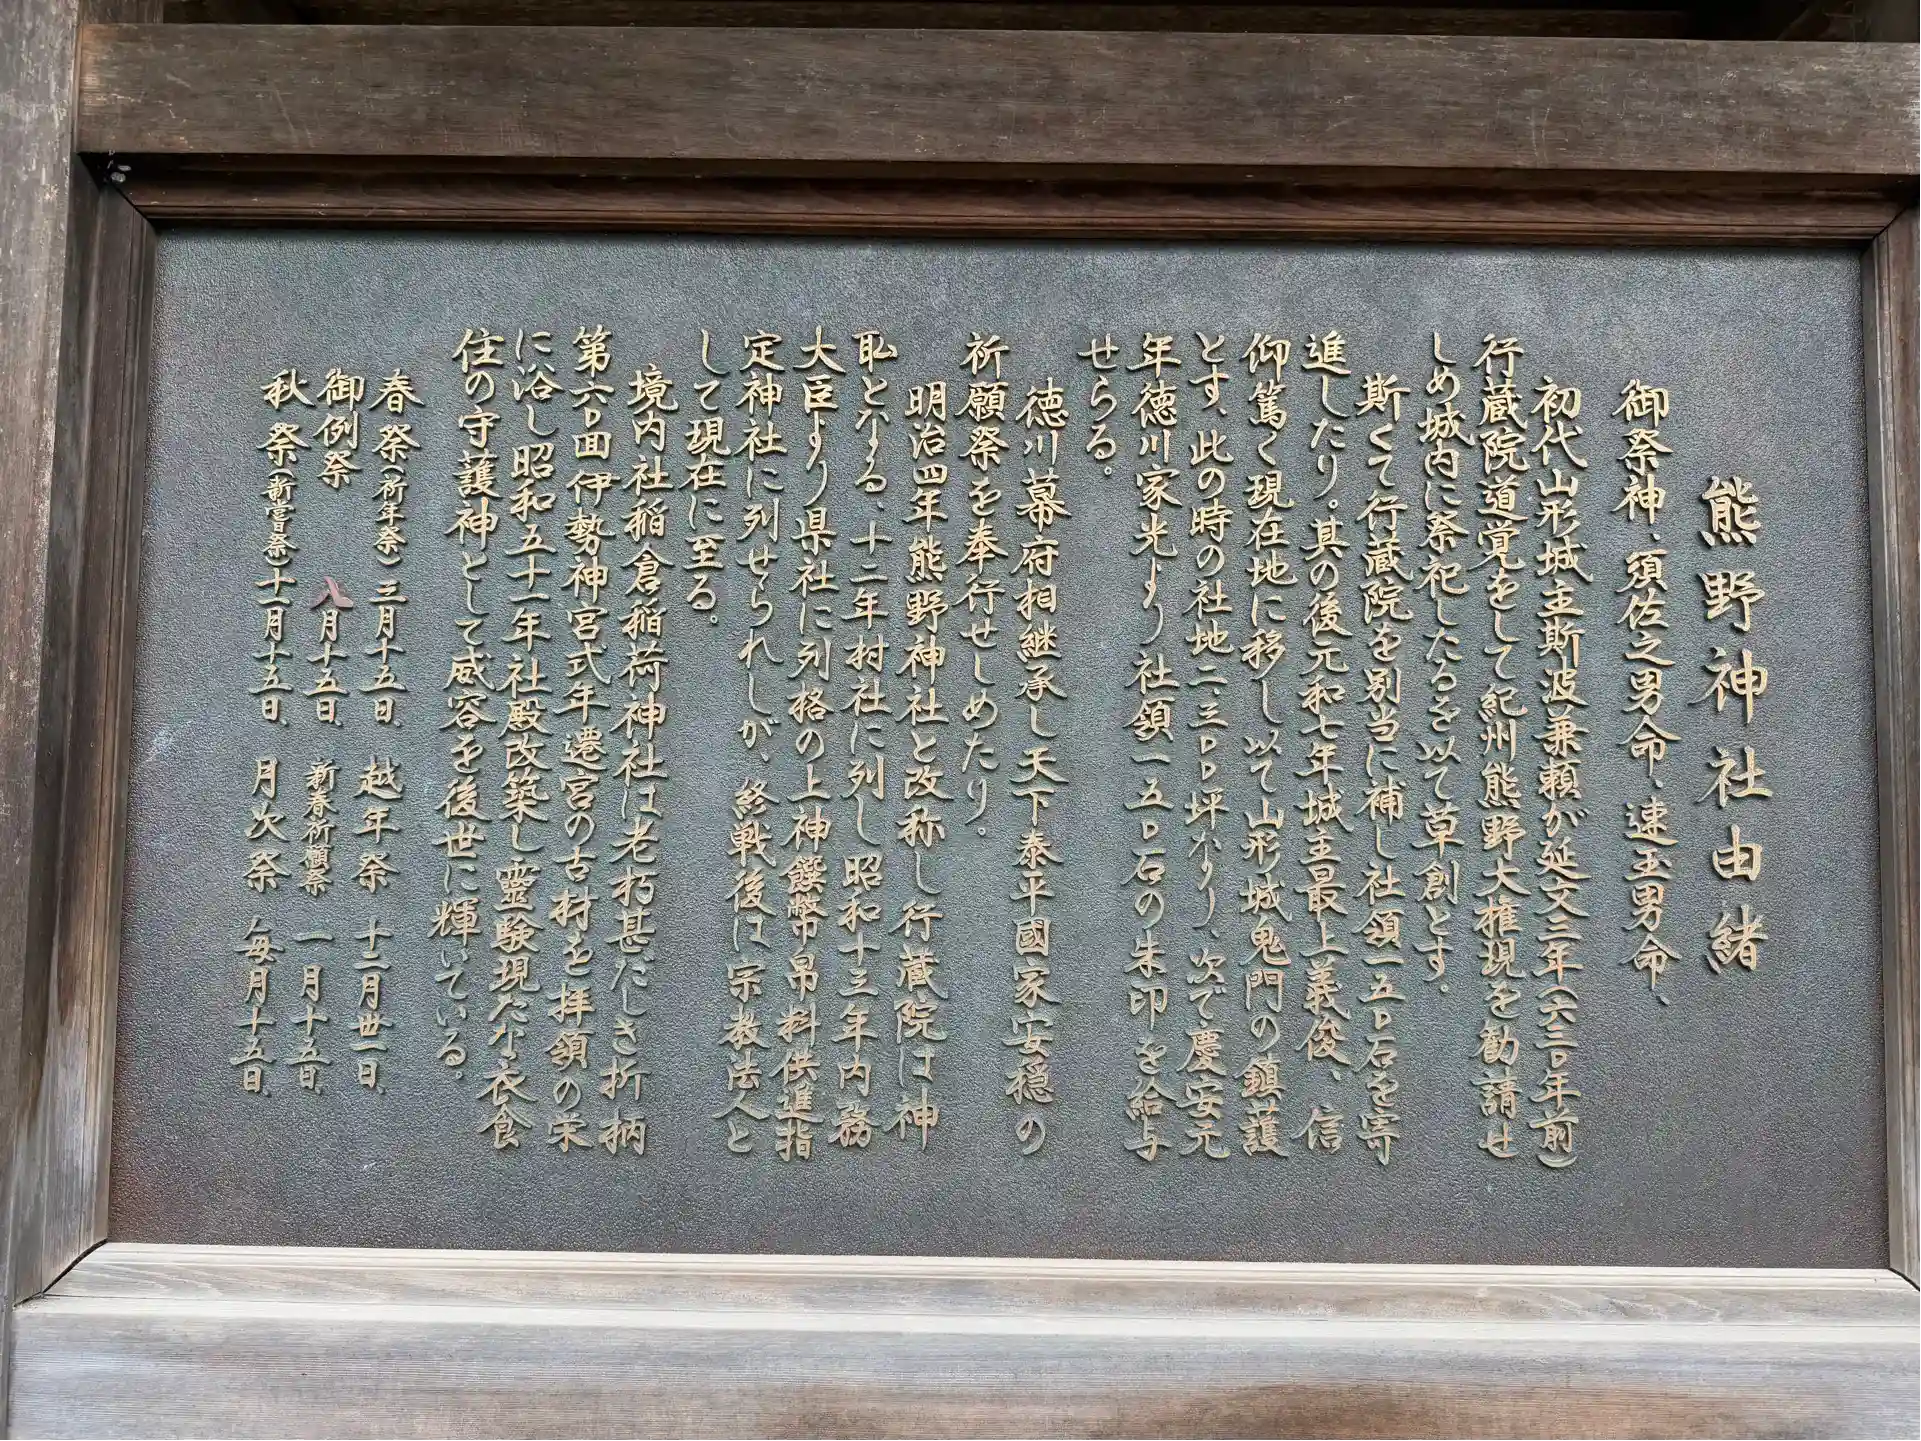 熊野神社由緒
御祭神、須佐之男命、速玉男命、
初代山形城主斯波兼頼が延文三年(六三〇年前)
行蔵院道覚をして紀州熊野大権現を勧請せ
しめ城内に祭祀したるを以て草創とす。
斯くて行蔵院を別当に補し社領一五〇石を寄
進したり。其の後元和七年城主最上義俊、信
仰篤く現在地に移し以て山形城鬼門の鎮護
とす、此の時の社地二、三〇〇坪なり、次で慶安元
年徳川家光より社領一五〇石の朱印を給与
せらる。
徳川幕府相継承し天下泰平國家安穏の
祈願祭を奉行せしめたり。
明治四年熊野神社と改称し行蔵院は神
恥となる、十二年村社に列し昭和十三年内務
大臣より県社に列格の上神饌幣帛料供進指
定神社に列せられしが、終戦後は宗教法人と
して現在に至る。
境内社稲倉稲荷神社は老朽甚だしき折柄
第六〇回伊勢神宮式年遷宮の古材を拝領の栄
に浴し昭和五十一年社殿改築し霊験現たな衣食
住の守護神として威容を後世に輝いている。
春祭(祈年祭)三月十五日、越年祭 十二月丗一日、
御例祭 八月十五日、新春祈願祭 一月十五日、
秋祭(新嘗祭)十一月十五日、月次祭 毎月十五日、